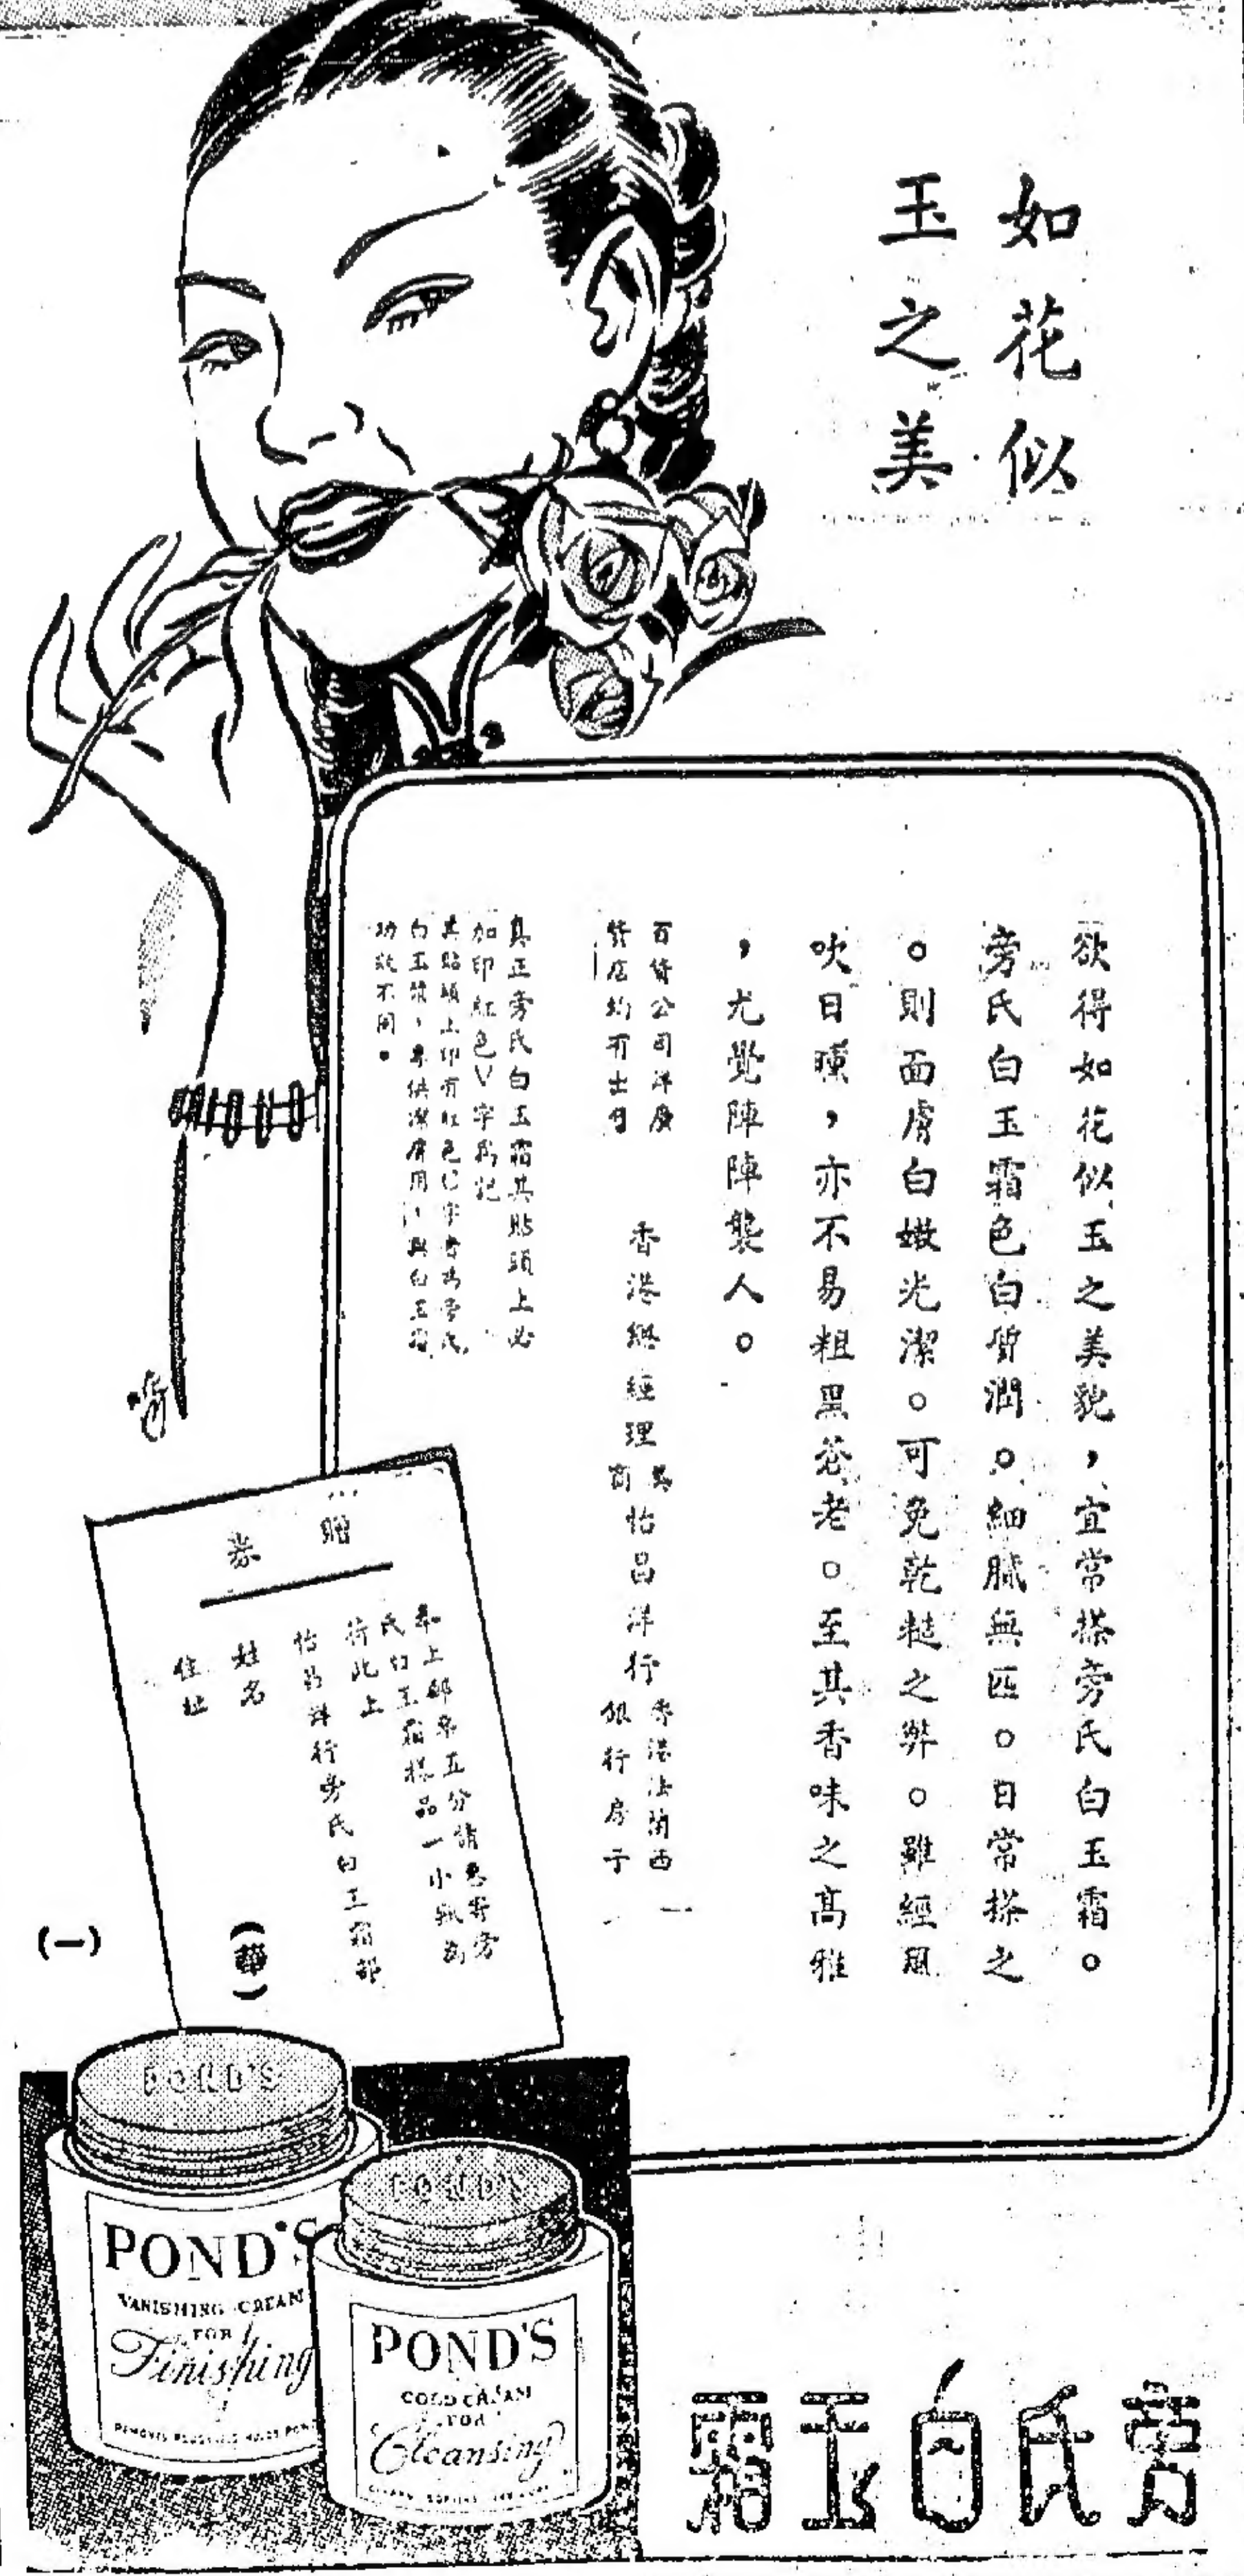 如花似
玉之美
欲得如花似玉之美貌，宜常搽旁氏白玉霜。
旁氏白玉霜色白質潤。細膩無匹。日常搽之
。則面膚白嫩光潔。可免乾糙之弊。雖經風
吹日曝，亦不易粗黑蒼老。至其香味之高雅
，尤覺陣陣襲人。
百貨公司洋廣
貨店均有出售
香港總經理英商怡昌洋行
香港法蘭西
銀行房子
真正旁氏白玉霜其貼頭上必
加印紅色V字為記
其貼頭上印有紅色C字者為旁氏
白玉漿，專供潔膚用，與白玉霜
功效不同。
贈券
奉上郵票五分請惠寄旁
氏白玉霜樣品一小瓶為
荷此上
怡昌洋行旁氏白玉霜部
姓名
住址
(華)
(一)
POND'S
POND'S
VANISHING CREAM
FOR
Finishing
POND'S
POND'S
COLD CREAM
FOR
Cleansing
霜玉白氏旁